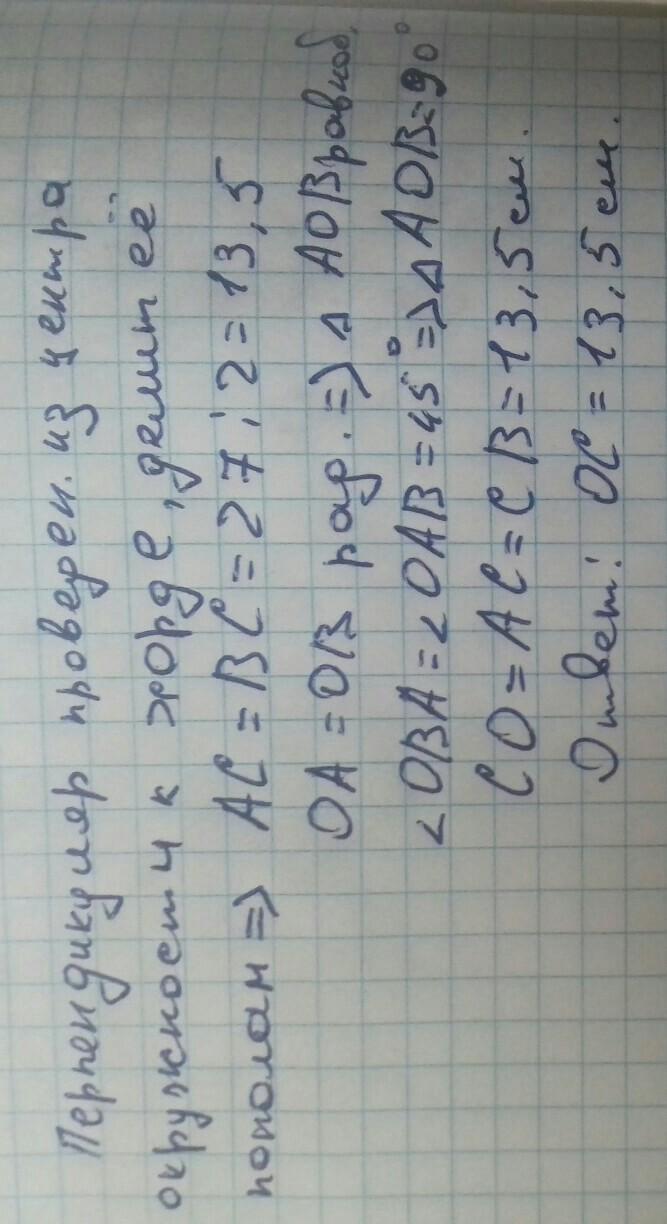 Перпендикуляр проведен. из центра
окружности к хорде, делит её
пополам => AC = BC = 27 : 2 = 13,5
OA = OB рад. => △ AOB равноб.
∠ OBA = ∠ OAB = 45° => △ AOB = 90°
CO = AC = CB = 13,5 см.
Ответ: OC = 13,5 см.